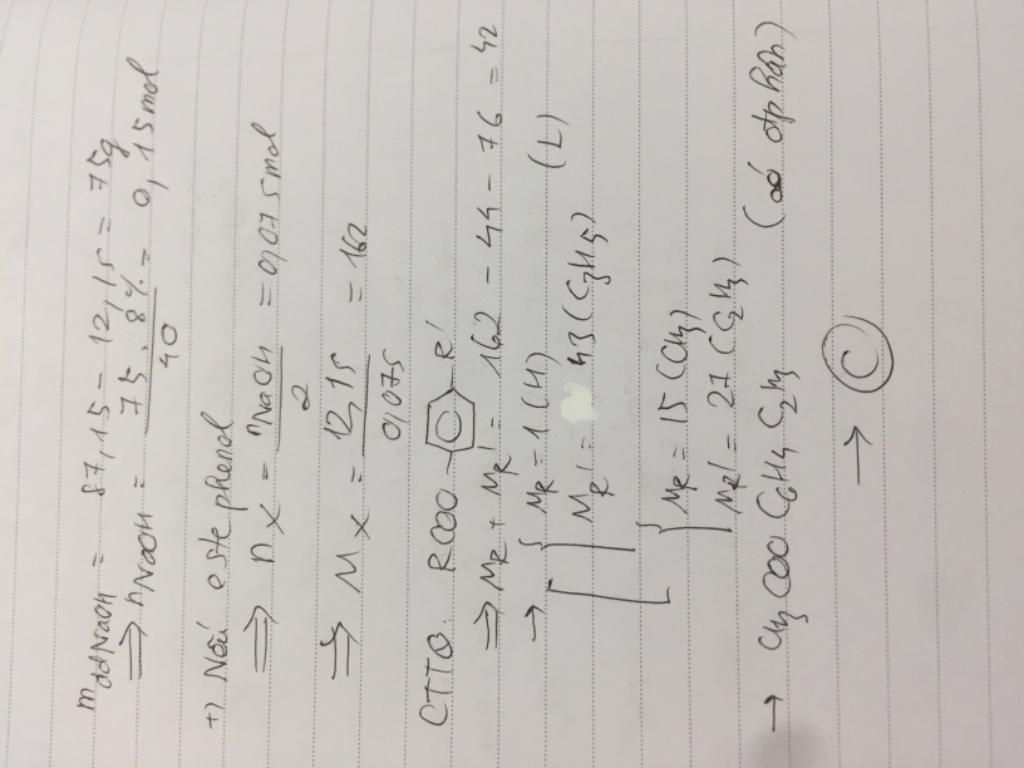 m ddNaOH = 87,15 - 12,15 = 75g
⟹ nNaOH = 75 . 8% / 40 = 0,15mol
+) Nếu este phenol
⟹ n X = nNaOH / 2 = 0,075mol
⟹ M X = 12,15 / 0,075 = 162
CTTQ: RCOO - - R'
⟹ MR + MR' = 162 - 44 - 76 = 42
→ MR = 1 (H)
MR' = 43 (C3H5) (L)
MR = 15 (CH3)
MR' = 27 (C2H3)
→ CH3COO C6H4 C2H3 (có đp hân)
→ C